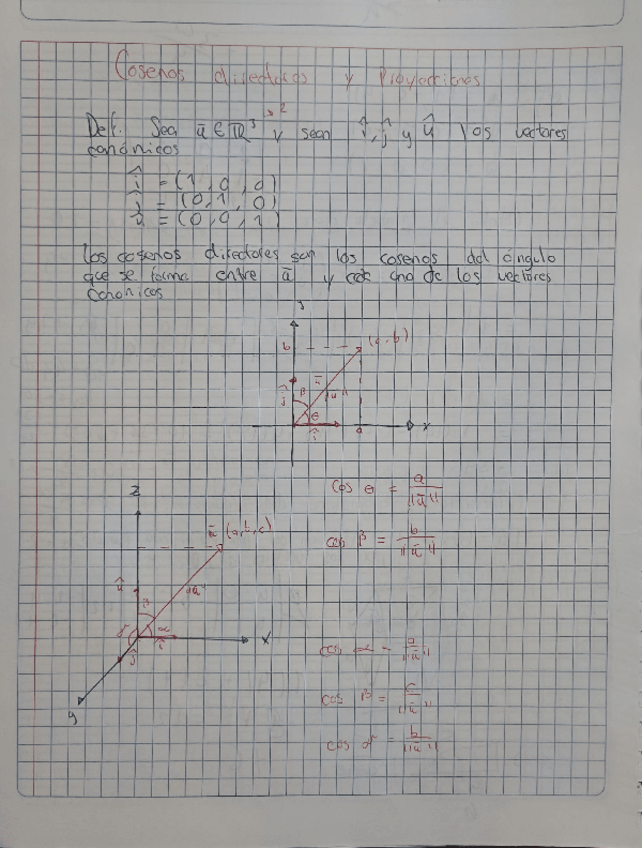 Cosenos directores y Proyecciones
→ 2
Def. Sea ū ∈ ℝ³ y sean î, ĵ y û los vectores
canónicos
î = (1, 0, 0)
ĵ = (0, 1, 0)
û = (0, 0, 1)
Los cosenos directores son los cosenos del ángulo
que se forma entre ū y cada uno de los vectores
canonicos
b
(a, b)
ĵ
β
ū
θ
î
a
x
cos θ = a/||ū||
cos β = b/||ū||
z
ū (a, b, c)
û
β
α
î
ĵ
x
y
cos α = a/||ū||
cos β = c/||ū||
cos γ = b/||ū||